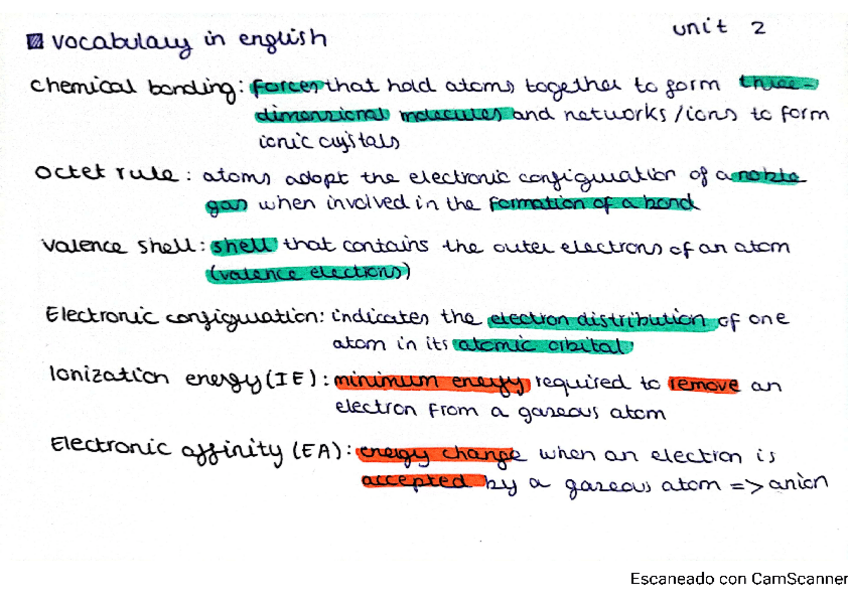 vocabulary in english
unit 2
chemical bonding: forces that hold atoms together to form three-
dimensional molecules and networks/ions to form
ionic crystals
octet rule: atoms adopt the electronic configuration of a noble
gas when involved in the formation of a bond
valence shell: shell that contains the outer electrons of an atom
(valence electrons)
Electronic configuration: indicates the electron distribution of one
atom in its atomic orbital
Ionization energy (IE): minimum energy required to remove an
electron from a gaseous atom
Electronic affinity (EA): energy change when an electron is
accepted by a gaseous atom => anion
Escaneado con CamScanner